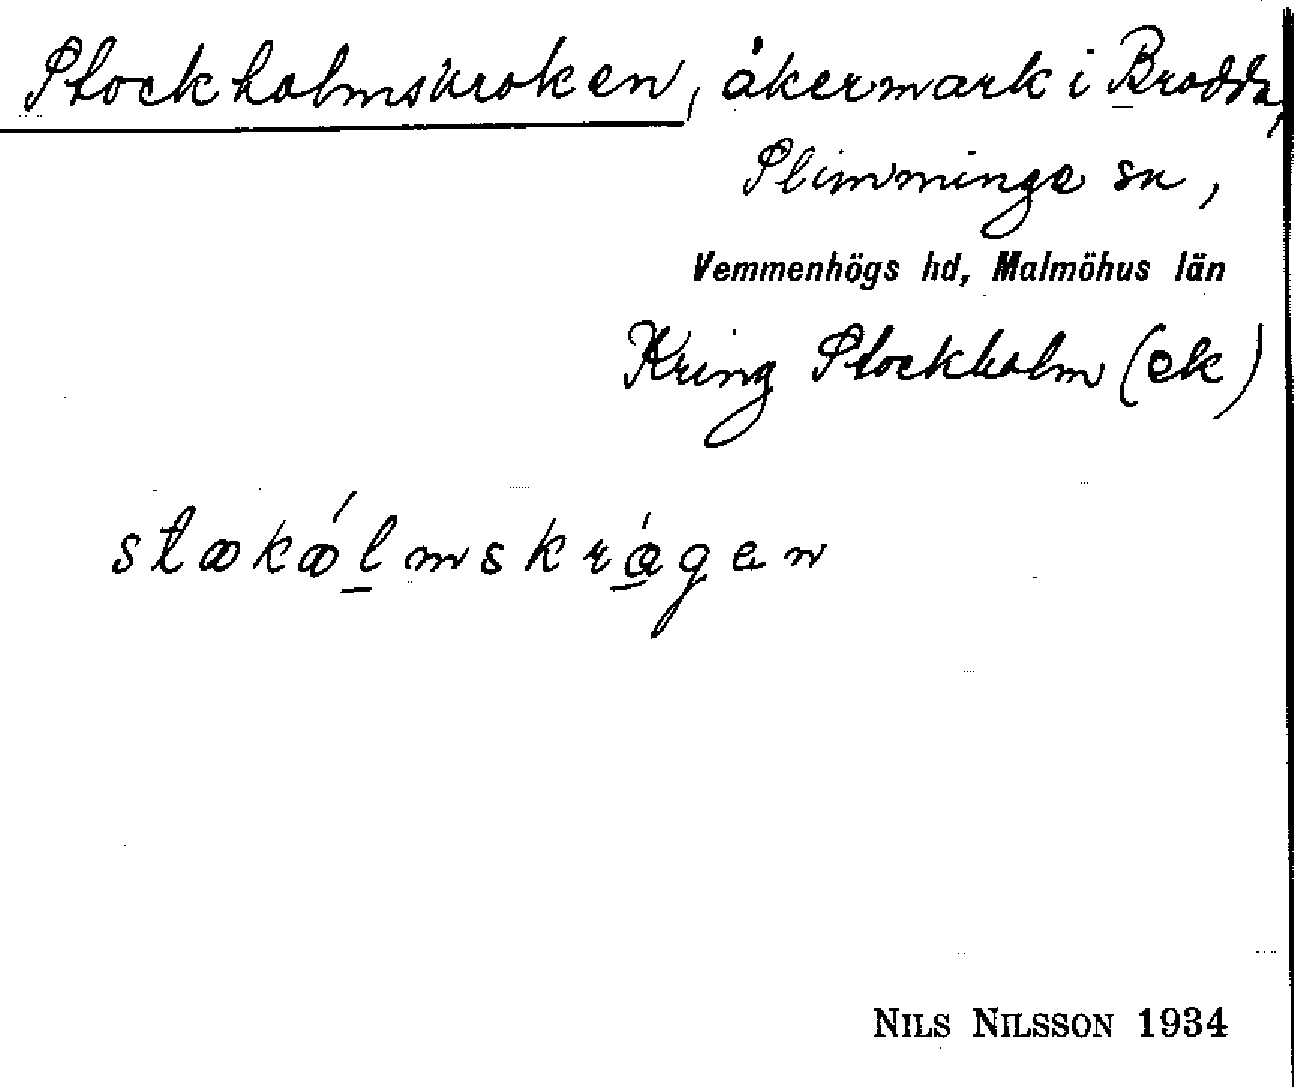 Stockholmskroken, åkermark i Brodda,
Slimminge sn,
Vemmenhögs hd, Malmöhus län
Kring Stockholm (ek)
stækǽlmskrågen
NILS NILSSON 1934